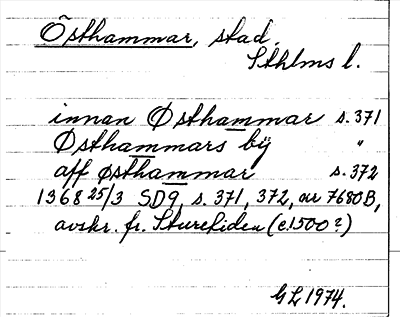 Östhammar, stad,
Sthlms l.
innan Østhammar s. 371
Østhammars bÿ "
aff østhammar s. 372
1368 25/3 SD9, s. 371, 372, nr 7680B,
avskr. fr. Sturetiden (c. 1500?)
GL 1974.